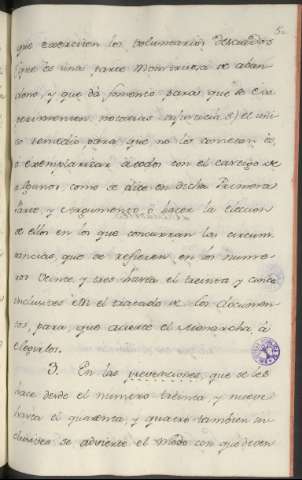 que exerciten los voluntarios descuidos
(que es una parte monstruosa de aban
dono, y que dá fomento para que se
notorias injusticias) el uni
co remedio para que no los cometan, es,
ó exemplarizar á todos con el castigo de
algunos, como se dice en dicha Primera
Parte, y Argumento, ó hacer la eleccion
de ellos en los que concurran las circuns
tancias, que se refieren, en los nume
ros veinte, y tres hasta el treinta y
inclusives en el tratado de los documen
tos, para, que acierte el Monarcha á
elegirlos.
3. En las prevenciones, que se les
hace desde el numero treinta y nueve
hasta el quarenta, y quatro tambien in
clusives se advierte el modo con que deven